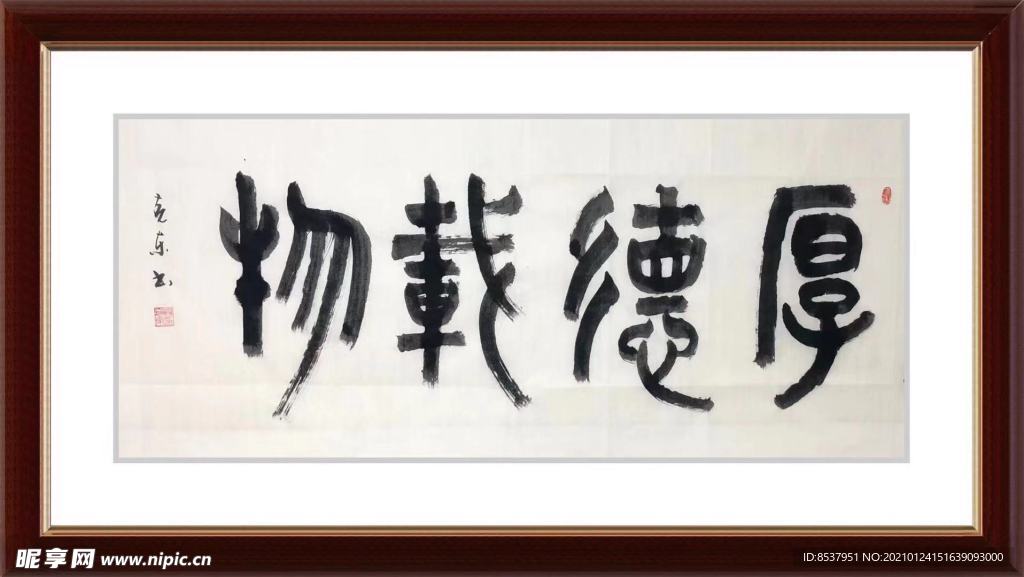 厚德載物
克東书
昵享网 www.nipic.cn
ID:8537951 NO:20210124151639093000